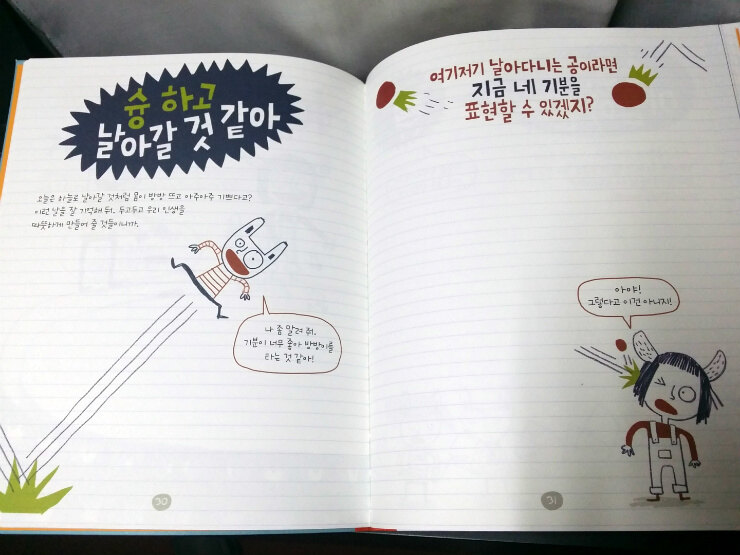 슝 하고
날아갈 것 같아
오늘은 하늘로 날아갈 것처럼 몸이 방방 뜨고 아주아주 기쁘다고?
이런 날을 잘 기억해 둬. 두고두고 우리 인생을
따뜻하게 만들어 줄 것들이니까.
나 좀 말려 줘.
기분이 너무 좋아 방방이를
타는 것 같아!
30
여기저기 날아다니는 공이라면
지금 네 기분을
표현할 수 있겠지?
아야!
그렇다고 이건 아니지!
31